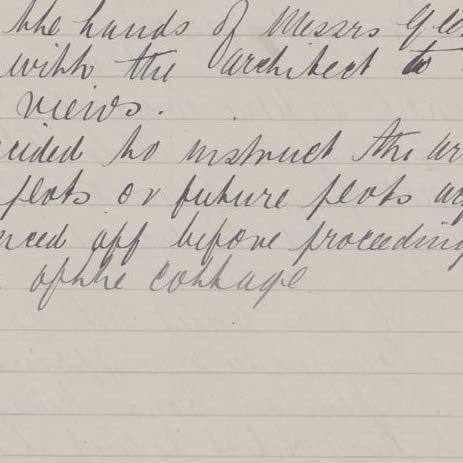 the hands of Messrs
with the architect to
views.
cided to instruct the ar
plots or future plots
nced off before proceeding
of the cottage